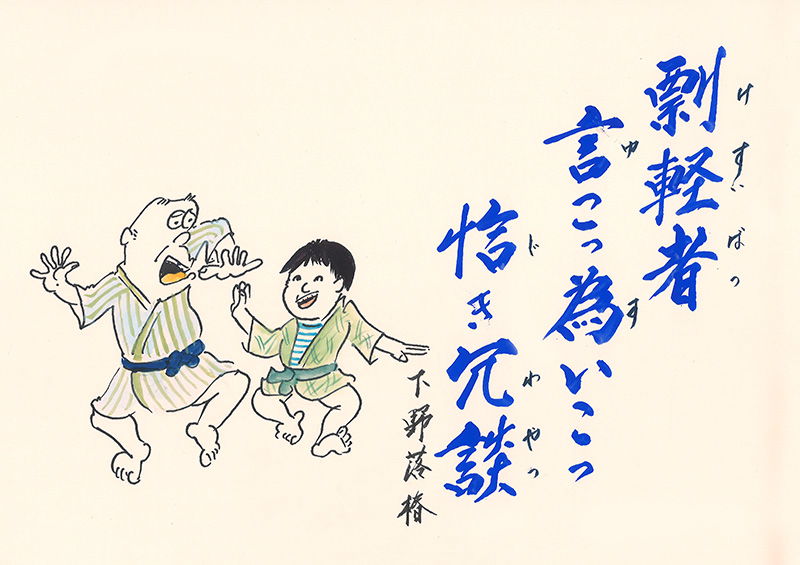 剽軽者
けすいぼっ
言こっ為いこっ
ゆ す
恰き冗談
じ わやっ
下野落椿